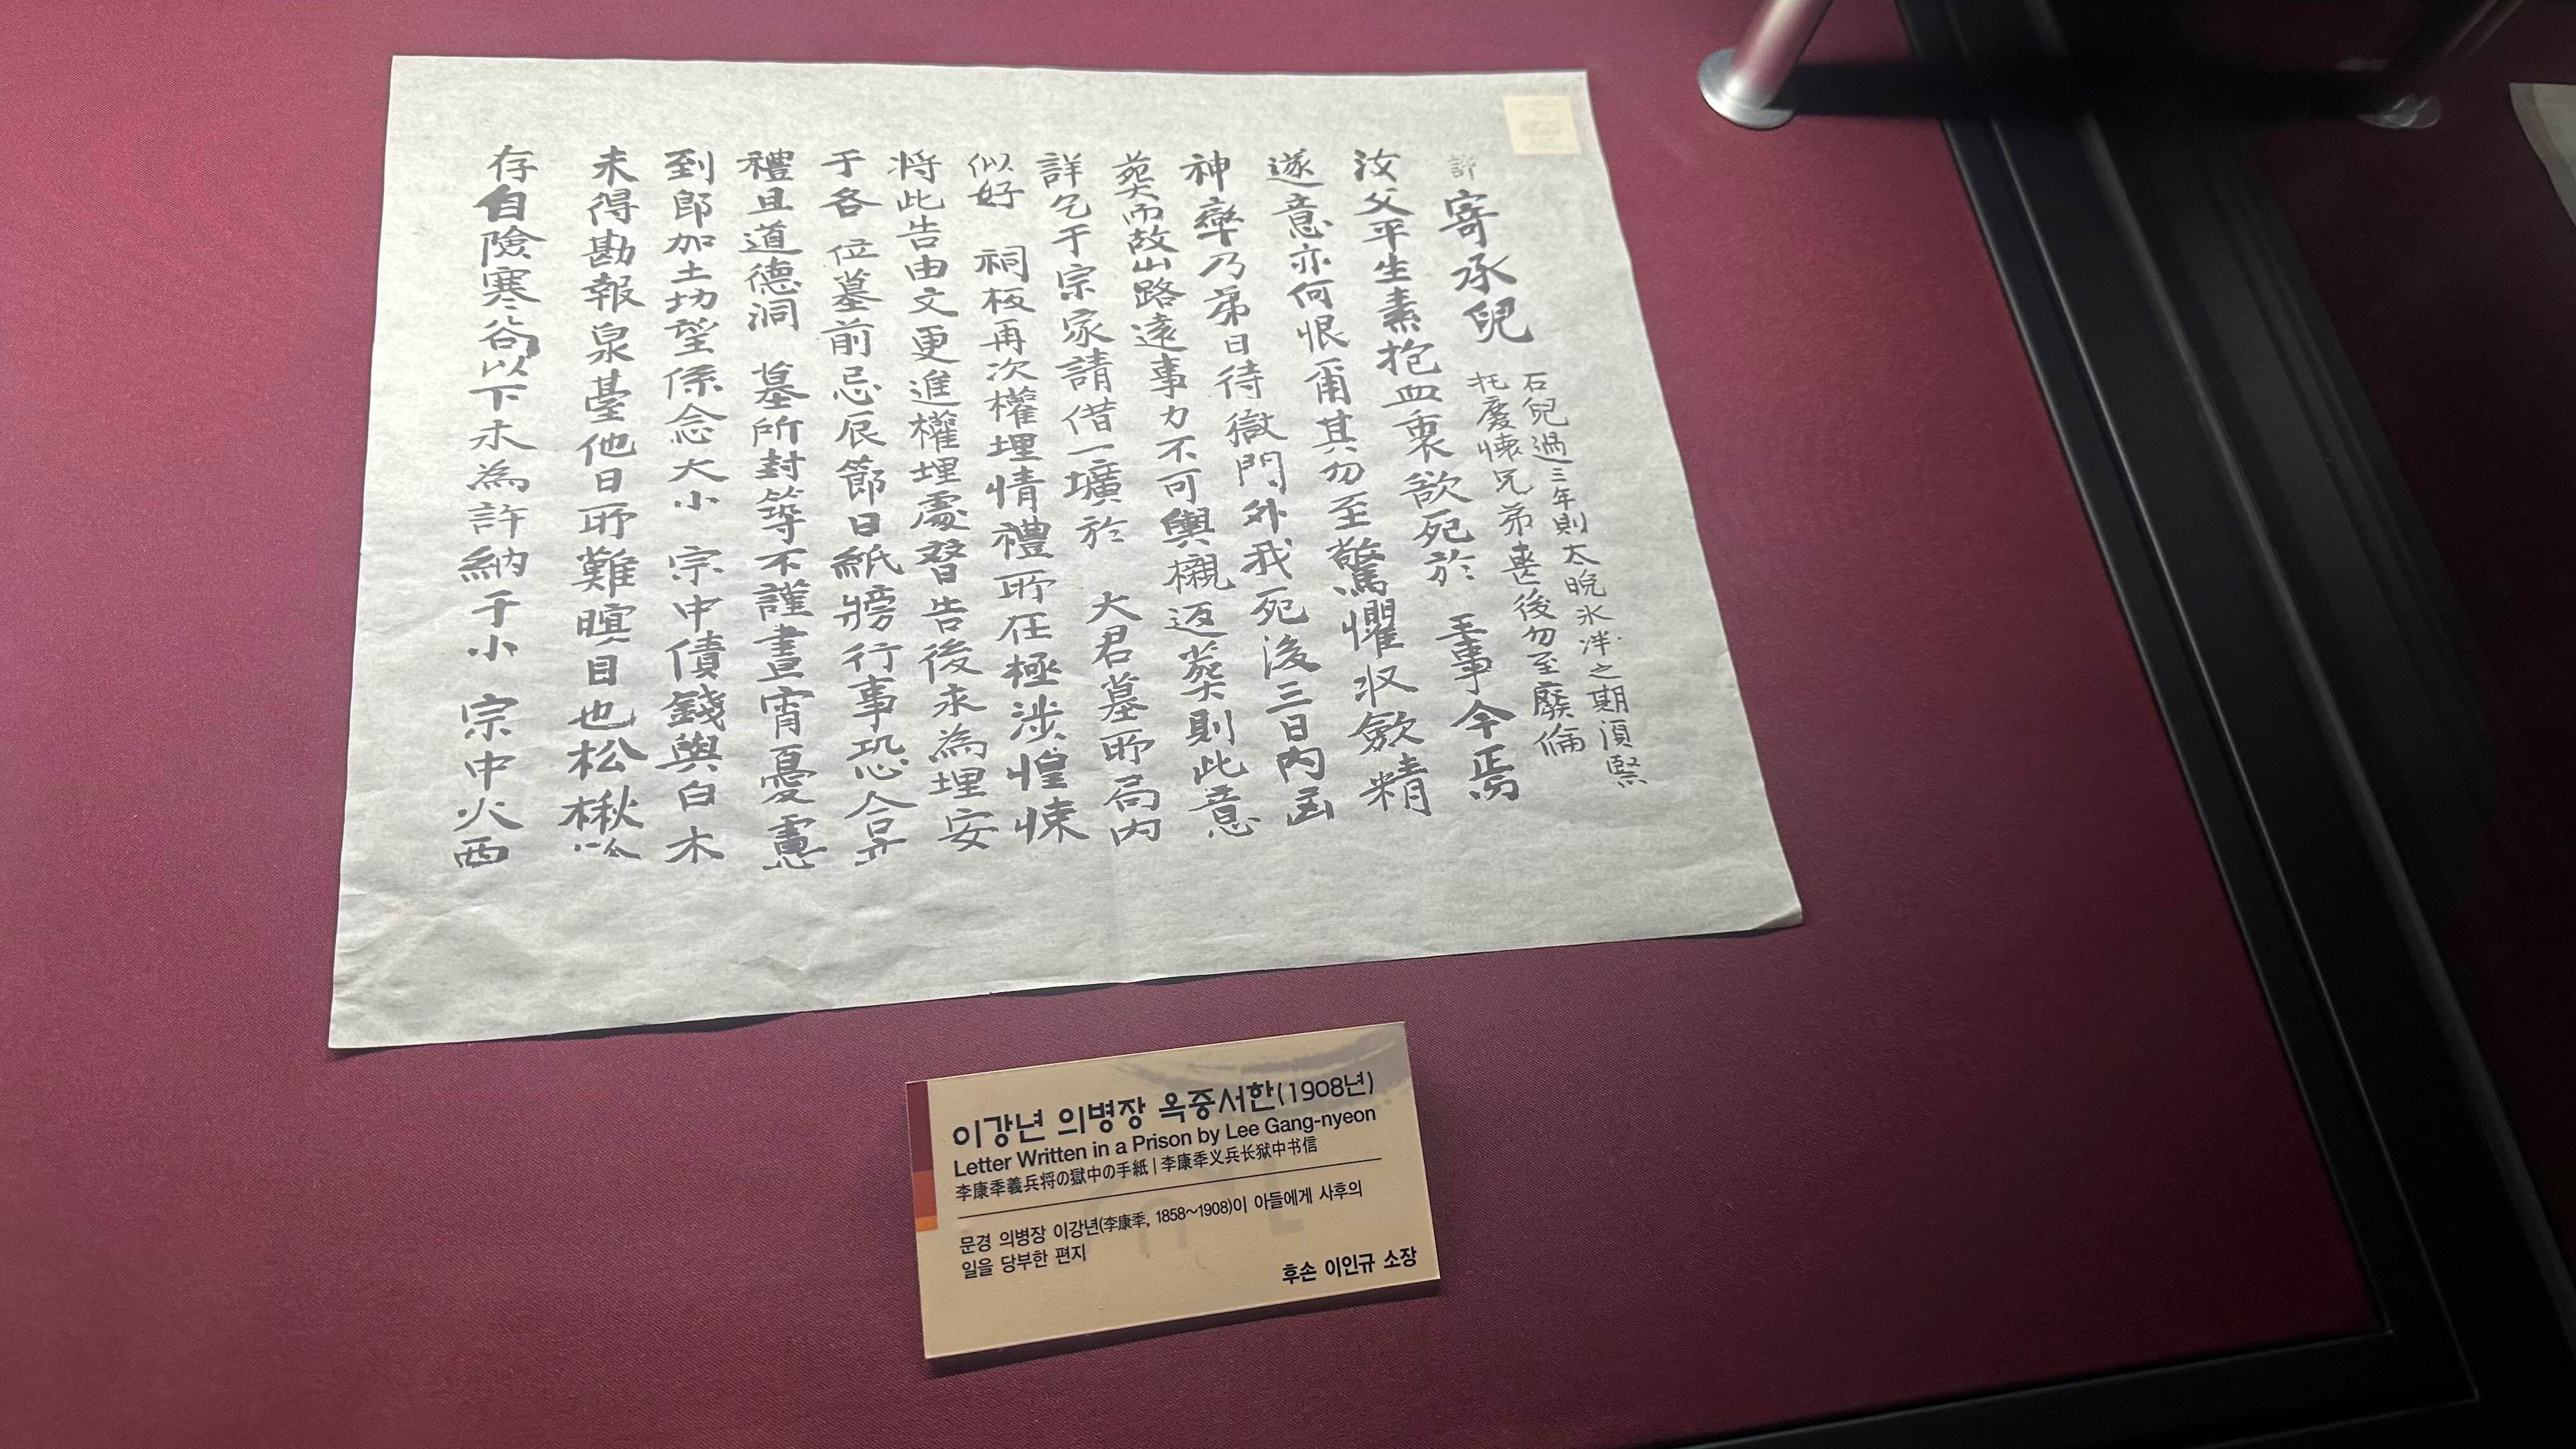 寄承兒
石兒過三年則太晩氷泮之期須緊
托慶懷兄弟喪後勿至廢倫
汝父平生素抱血衷欲死於 王事今焉
遂意亦何恨甫其勿至驚懼收斂精
神率乃弟日待獄門外我死後三日內函
葬而故山路遠事力不可輿櫬返葬則此意
詳乞于宗家請借一壙於 大君墓所局內
似好 祠板再次權埋情禮所在極涉惶悚
將此告由文更進權埋處替告後永為埋安
于各位墓前忌辰節日紙牓行事恐合
禮且道德洞 墓所封等不謹晝宵憂慮
到郎加土切望係念大小 宗中債錢與白木
未得勘報泉臺他日所難瞑目也松楸
存自險寒谷以下永為許納于小 宗中火西
이강년 의병장 옥중서한(1908년)
Letter Written in a Prison by Lee Gang-nyeon
李康秊義兵将の獄中の手紙 | 李康秊义兵长狱中书信
문경 의병장 이강년(李康秊, 1858~1908)이 아들에게 사후의
일을 당부한 편지
후손 이인규 소장